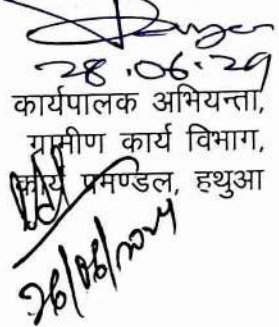 28.06.24
कार्यपालक अभियन्ता,
ग्रामीण कार्य विभाग,
कार्य प्रमण्डल, हथुआ
26/06/2024